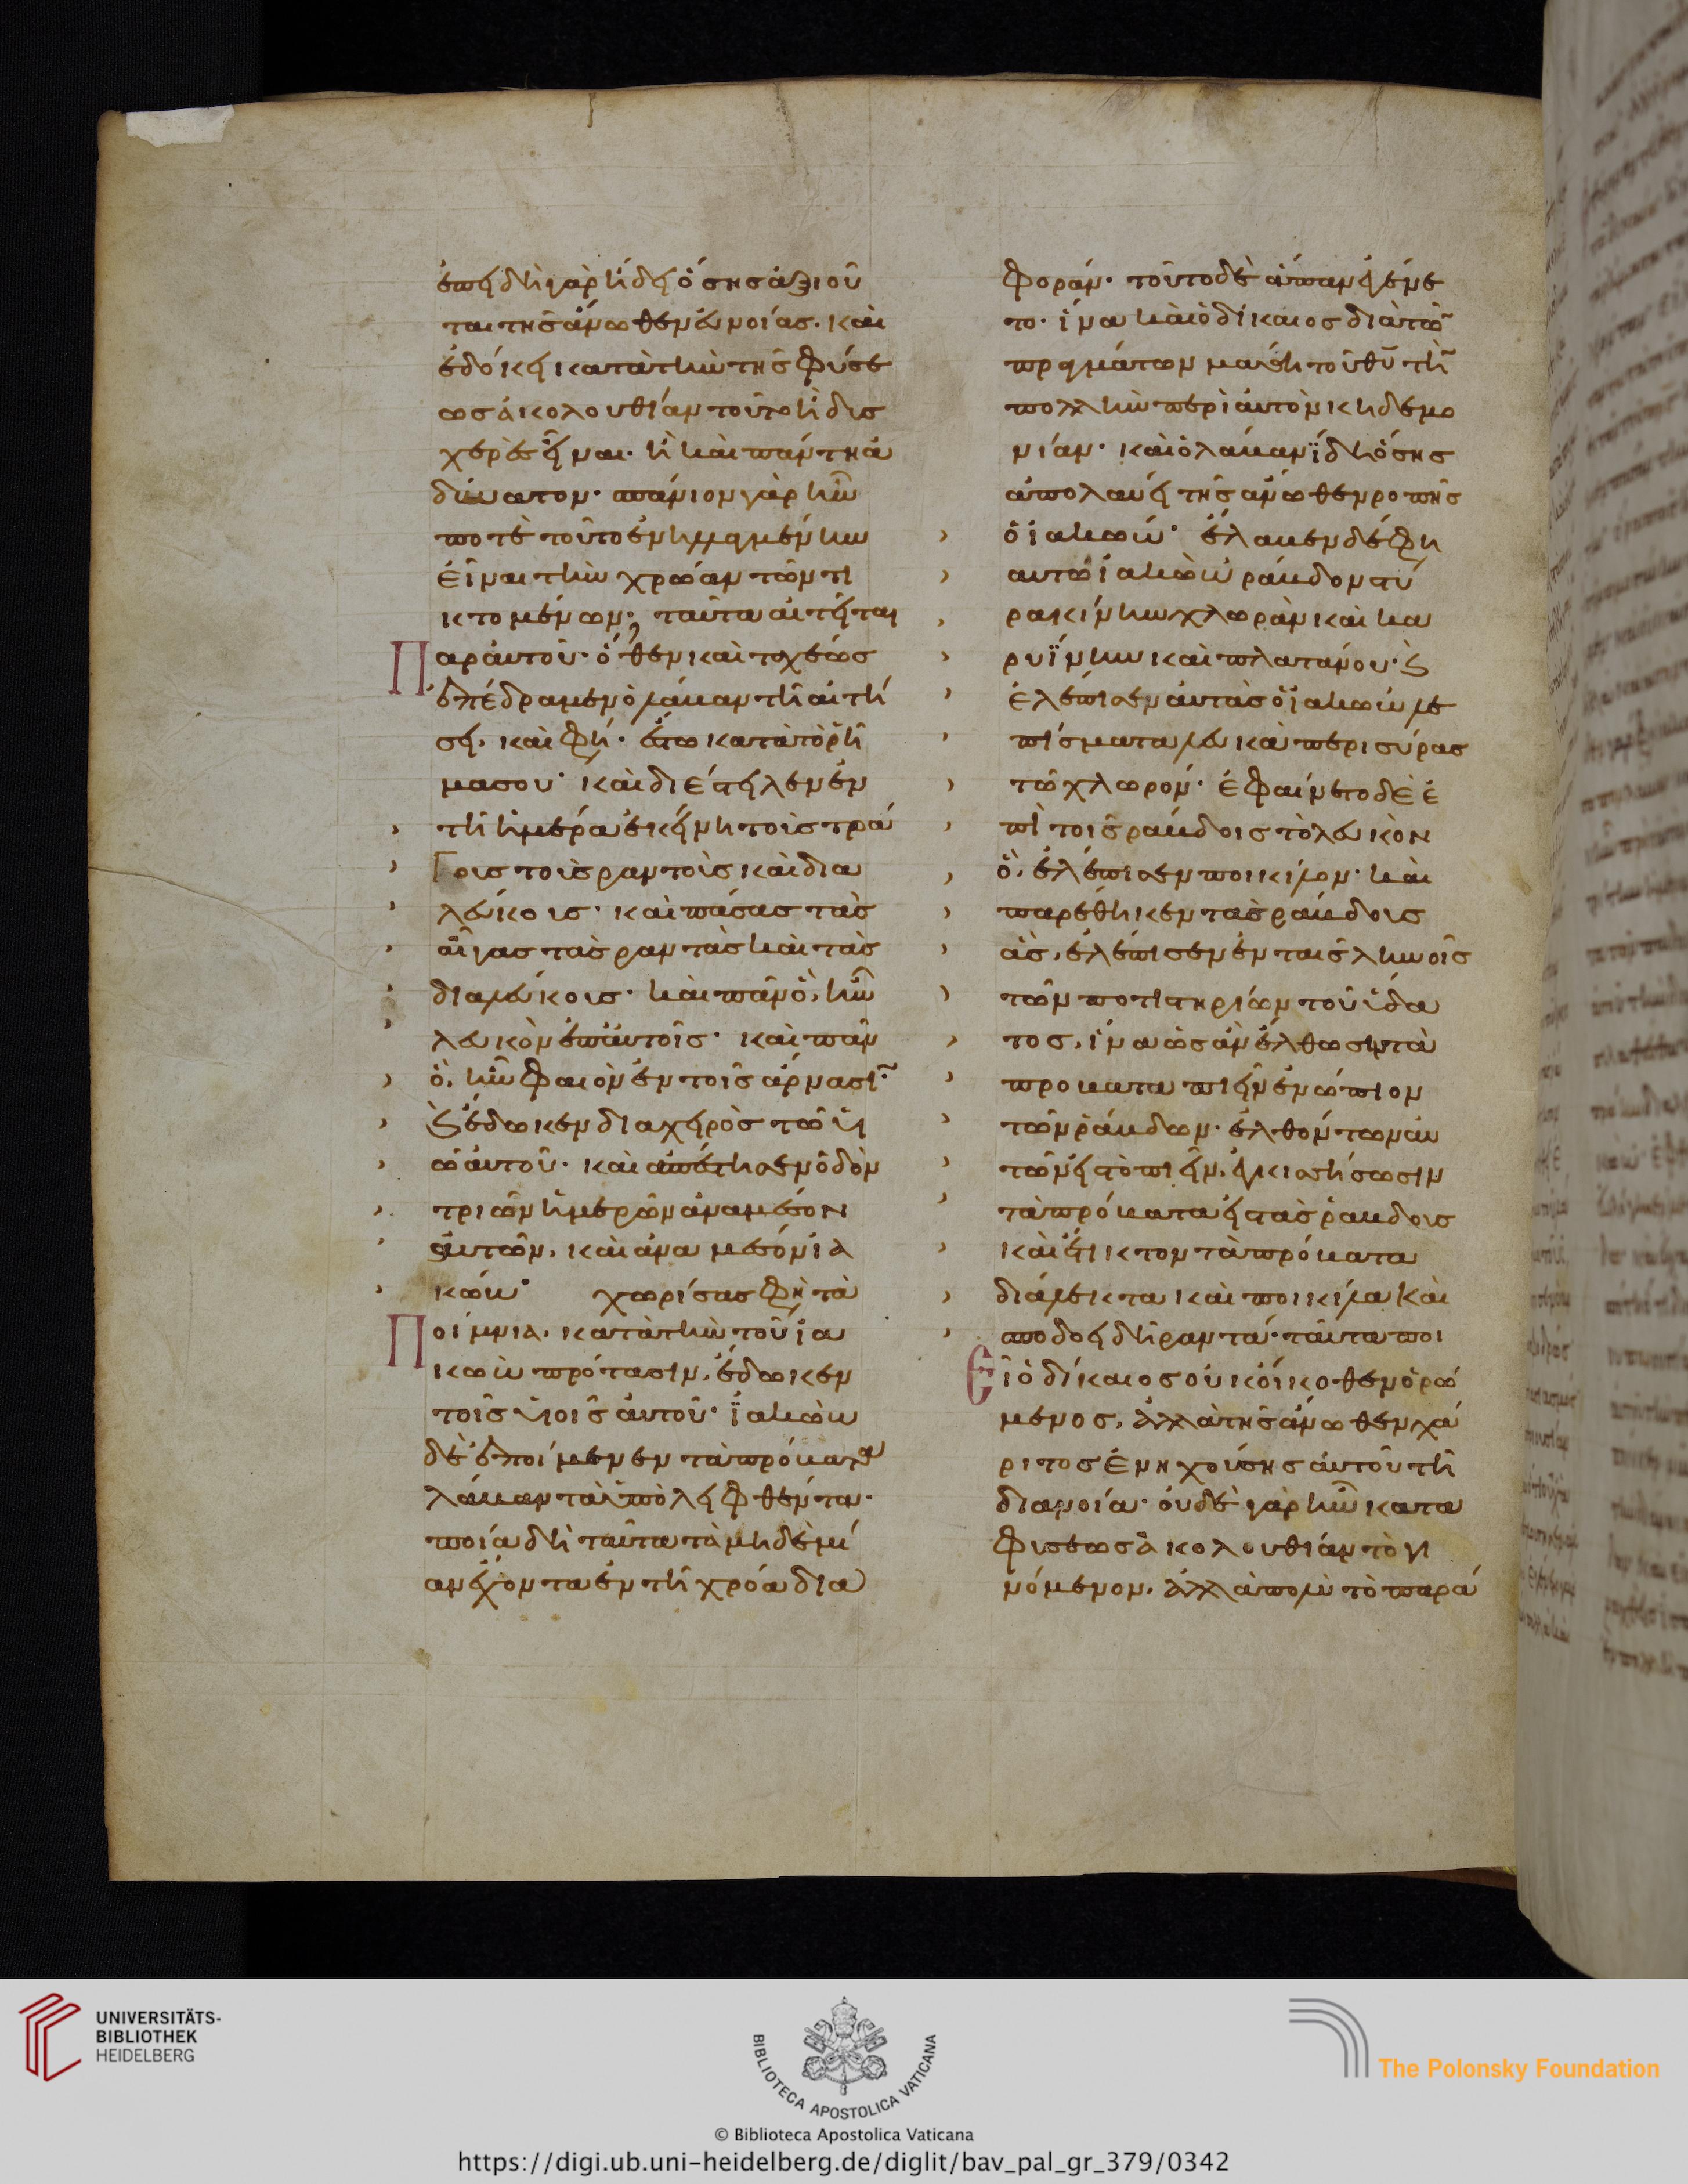 ἐπειδὴ γὰρ ἤδει ὅσης ἀξιοῦ
ται τῆς ἄνωθεν εὐνοίας. καὶ
ἐδόκει κατὰ τὴν τῆς φύσε
ως ἀκολουθίαν τοῦτο ἢ δυσ
χερὲς εἶναι. ἢ καὶ παντη ἀ
δύνατον. σπάνιον γὰρ ἦν
ποτὲ τοῦτο ἐνηλλαγμένην
εἶναι τὴν χροιὰν τῶν τι
κτομένων, ταῦτα αἰτεῖται
Παρ αὐτοῦ· ὅθεν καὶ ταχέως
ἐπέδραμεν ὁ λάβαν τῆ αἰτή
σει. καὶ φη· ἔστω κατὰ τὸ ῥῆ
μα σου· καὶ διέστειλεν ἐν
τῆ ἡμέρα ἐκείνη τοὺς τρά
γους τοὺς ραντοὺς καὶ δια
λεύκους· καὶ πάσας τὰς
αἶγας τὰς ραντὰς καὶ τὰς
διαλεύκους· καὶ πᾶν ὃ, ἦν
λευκὸν ἐπ αὐτοῖς· καὶ πᾶν
ὃ, ἦν φαιὸν ἐν τοῖς ἀρνάσι·
καὶ ἔδωκεν δια χειρὸς τῶν υἱ
ῶν αὐτοῦ· καὶ ἀπέστησεν ὁδὸν
τριῶν ἡμερῶν ἀναμέσον
αὐτῶν, καὶ ἀνα μέσον ϊα
κώβ· χωρίσας φη τὰ
Ποίμνια, κατὰ τὴν τοῦ ϊα
κωβ πρότασιν, ἔδωκεν
τοῖς υἱοῖς αὐτοῦ· ϊακὼβ
δὲ ἐποίμενεν τὰ πρόβατα
λάβαν τὰ ὑπολειφθέντα·
ποία δὴ ταῦτα τὰ μηδὲ μί
αν ἔχοντα ἐν τῆ χρόα δια
φοράν· τοῦτο δὲ ἅπαν ἐγένε
το· ἵνα καὶ ὁ δίκαιος διὰ τῶν
πραγμάτων μάθη τοῦ θυ τὴν
πολλὴν περὶ αὐτὸν κηδεμο
νίαν· καὶ ὁ λάβαν ϊδη ὅσης
ἀπολαύει τῆς ἄνωθεν ροπῆς
ὁ ϊακώβ· ἔλαβεν δέ φη
αυτῶ ϊακὼβ ράβδον στυ
ρακίνην χλωρὰν καὶ κα
ρυΐνην καὶ πλατάνου· καὶ
ἐλέπισεν αὐτὰς ὁ ϊακὼβ λε
πίσματα λευκὰ περισύρας
τὸ χλωρόν· ἐφαίνετο δὲ ἐ
πὶ τοῖς ράβδοις τὸ λευκὸν
ὃ, ἐλέπισεν ποικίλον· καὶ
παρέθηκεν τὰς ράβδους
ἃς, ἐλέπισεν ἐν ταῖς ληνοῖς
τῶν ποτιστηρίων τοῦ ὕδα
τος, ἵνα ὡς ἂν ἔλθωσιν τὰ
προβατα πιεῖν ἐνώπιον
τῶν ράβδων· ἐλθόντων αὐ
τῶν εἰς τὸ πιεῖν, ἐγκισσήσωσιν
τὰ πρόβατα εἰς τὰς ῥάβδους
καὶ ἔτικτον τὰ πρόβατα
διάλευκτα καὶ ποικίλα καὶ
σποδοειδῆ ραντά· ταῦτα ποι
Εῖ ὁ δίκαιος οὐκ οἴκοθεν ὁρώ
μενος, ἀλλὰ τῆς ἄνωθεν χά
ριτος ἐνηχούσης αὐτοῦ τῆ
διανοία· οὐδὲ γὰρ ἦν κατα
φυσεως ἀκολουθίαν τὸ γι
νόμενον, ἀλλὰ πολὺ τὸ παρά
UNIVERSITÄTS-
BIBLIOTHEK
HEIDELBERG
BIBLIOTECA APOSTOLICA VATICANA
The Polonsky Foundation
© Biblioteca Apostolica Vaticana
https://digi.ub.uni-heidelberg.de/diglit/bav_pal_gr_379/0342